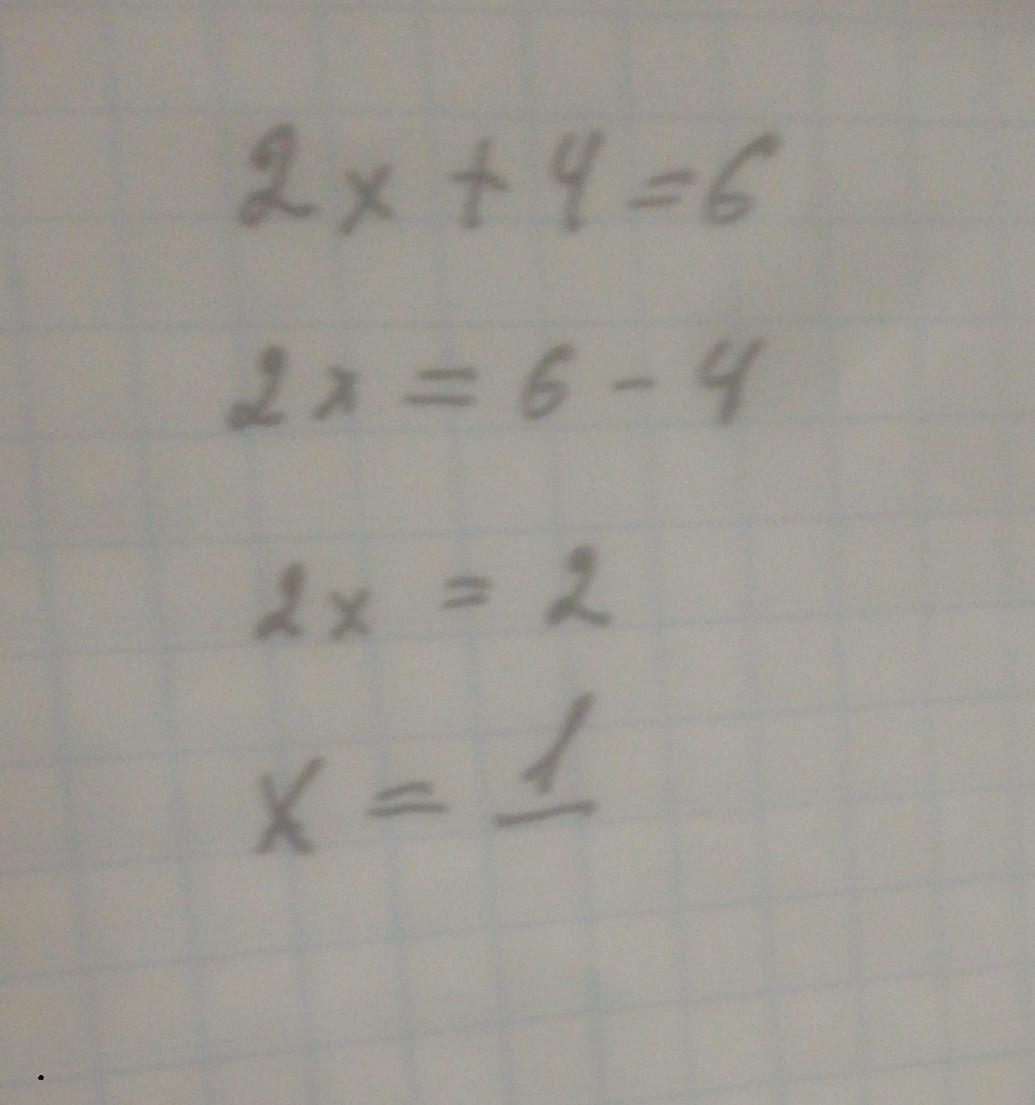 2x + 4 = 6
2x = 6 - 4
2x = 2
x = 1